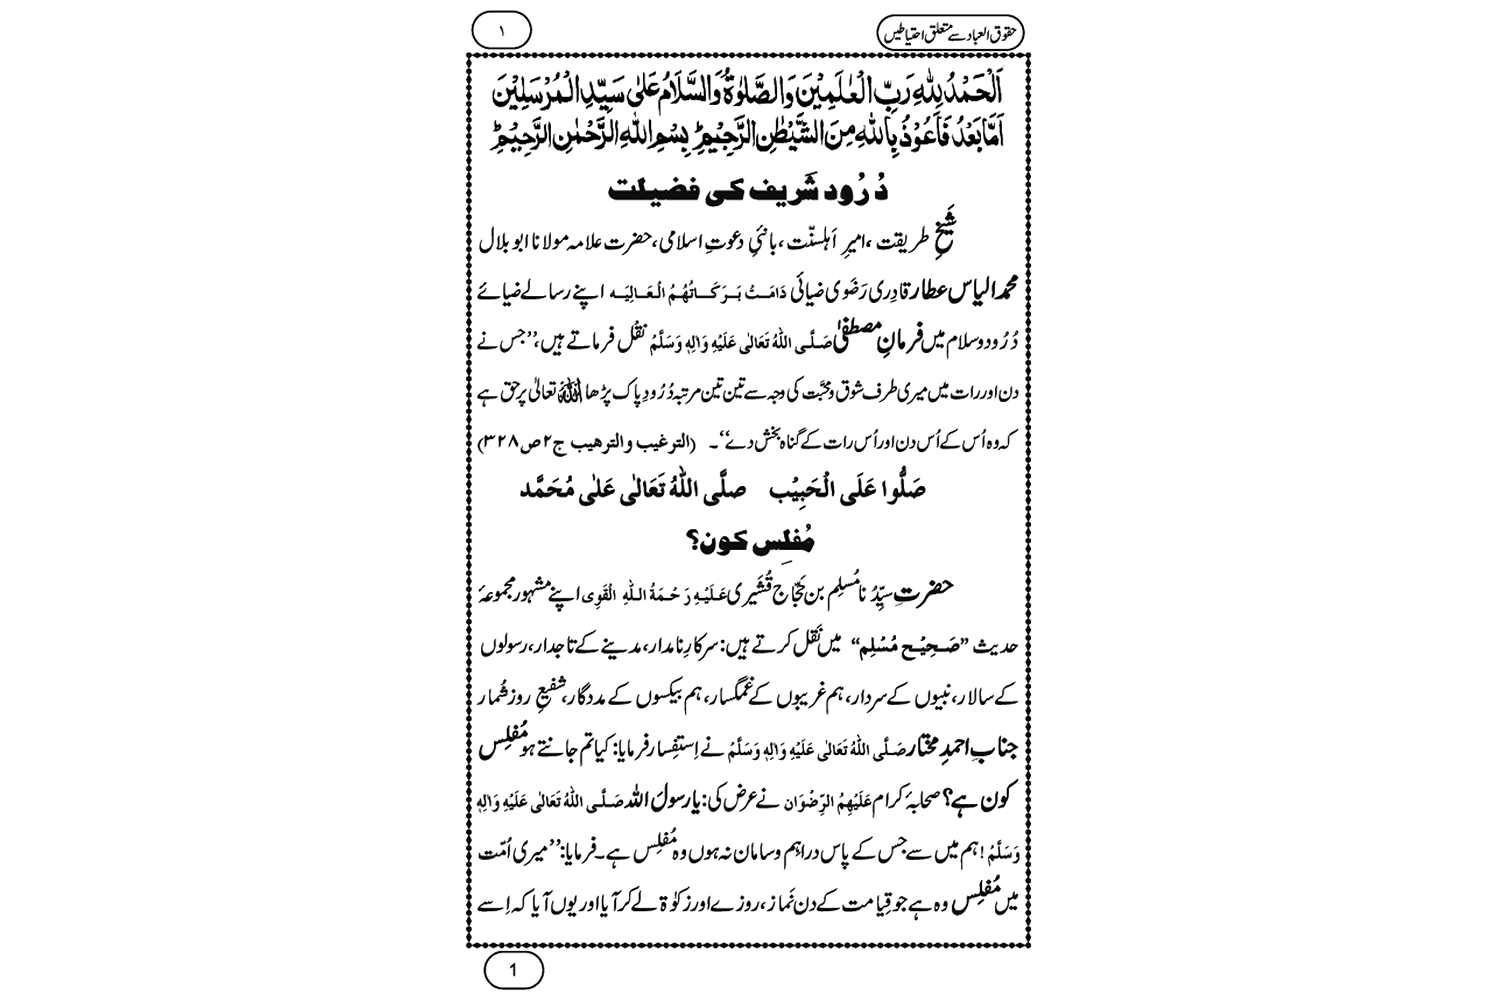 حقوق العباد سے متعلق احتیاطیں
۱
اَلْحَمْدُ لِلّٰهِ رَبِّ الْعٰلَمِیْنَ وَالصَّلٰوةُ وَالسَّلَامُ عَلٰی سَیِّدِ الْمُرْسَلِیْنَ
اَمَّا بَعْدُ فَاَعُوْذُ بِاللّٰهِ مِنَ الشَّیْطٰنِ الرَّجِیْمِ ؕ بِسْمِ اللّٰهِ الرَّحْمٰنِ الرَّحِیْمِ ؕ
دُرُود شَریف کی فضیلت
شَیخِ طریقت، امیرِ اَہلسنّت، بانیِٔ دعوتِ اسلامی، حضرت علامہ مولانا ابو بلال
محمد الیاس عطار قادِری رَضَوی ضیائی دَامَتْ بَرَکَاتُهُمُ الْعَالِیَه اپنے رسالے ضیائے
دُرُود و سلام میں فرمانِ مصطفٰی صَلَّی اللّٰهُ تَعَالٰی عَلَیْهِ وَاٰلِهٖ وَسَلَّمْ نقْل فرماتے ہیں، ’’جس نے
دن اور رات میں میری طرف شوق و محبَّت کی وجہ سے تین تین مرتبہ دُرُودِ پاک پڑھا اللہ تعالیٰ پر حق ہے
کہ وہ اُس کے اُس دن اور اُس رات کے گناہ بخش دے‘‘۔ (الترغیب والترھیب ج۲ ص۳۲۸)
صَلُّوا عَلَی الْحَبِیْب صلَّی اللّٰهُ تَعَالٰی عَلٰی مُحَمَّد
مُفلِس کون؟
حضرتِ سیِّدُنا مُسلِم بن حَجّاج قُشَیری عَلَیْهِ رَحْمَةُ اللّٰهِ الْقَوِی اپنے مشہور مجموعۂ
حدیث ”صَحِیْح مُسْلِم“ میں نَقْل کرتے ہیں: سرکارِ نامدار، مدینے کے تاجدار، رسولوں
کے سالار، نبیوں کے سردار، ہم غریبوں کے غمگسار، ہم بیکسوں کے مددگار، شفیعِ روزِ شُمار
جنابِ احمدِ مختار صَلَّی اللّٰهُ تَعَالٰی عَلَیْهِ وَاٰلِهٖ وَسَلَّمْ نے اِستِفسار فرمایا: کیا تم جانتے ہو مُفلِس
کون ہے؟ صحابۂ کرام عَلَیْهِمُ الرِّضْوَان نے عرض کی: یا رسولَ اللہ صَلَّی اللّٰهُ تَعَالٰی عَلَیْهِ وَاٰلِهٖ
وَسَلَّمْ! ہم میں سے جس کے پاس دراہِم و سامان نہ ہوں وہ مُفلِس ہے۔ فرمایا: ’’میری اُمّت
میں مُفلِس وہ ہے جو قِیامت کے دن نَماز، روزے اور زکوٰۃ لے کر آیا اور یوں آیا کہ اِسے
1